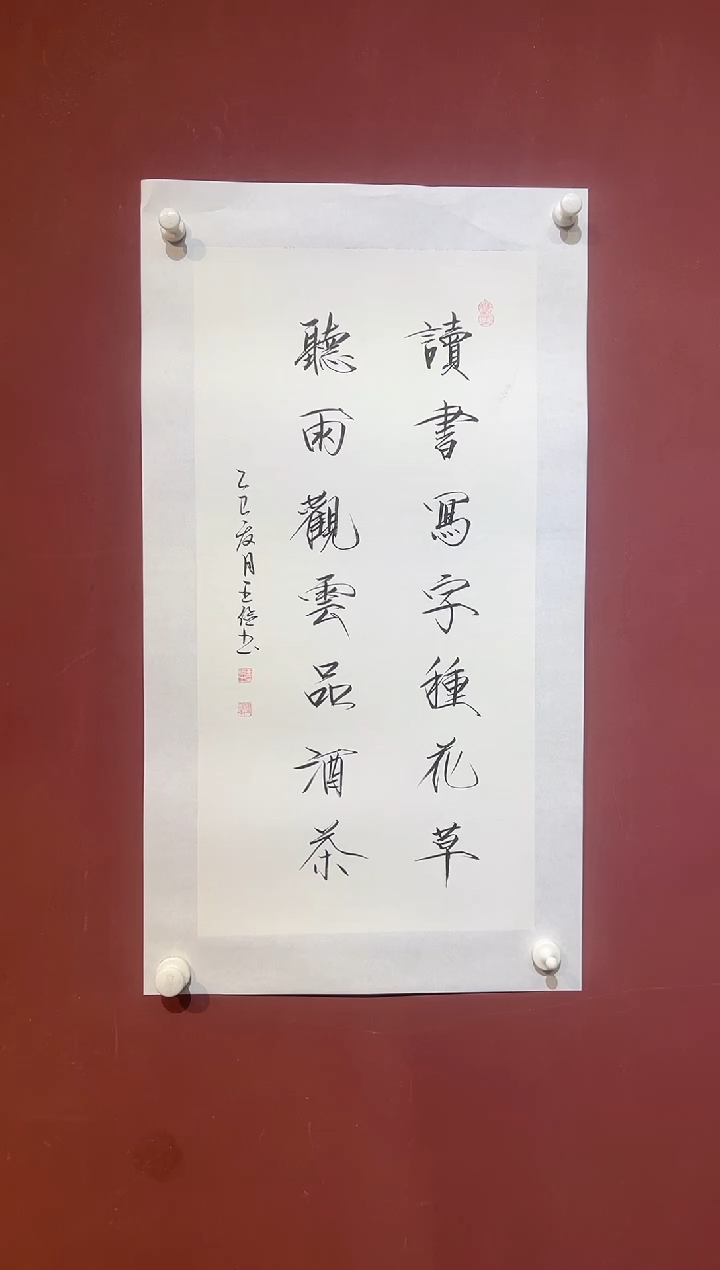 讀書寫字種花草
聽雨觀雲品酒茶
乙巳夏月王俊书